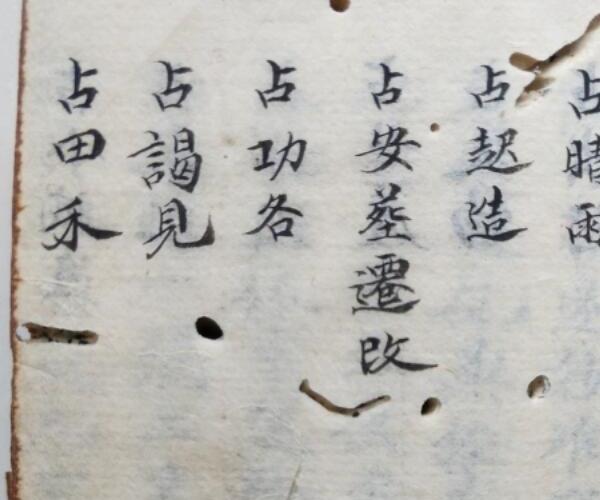 占晴雨
占起造
占安葬遷改
占功各
占謁見
占田禾